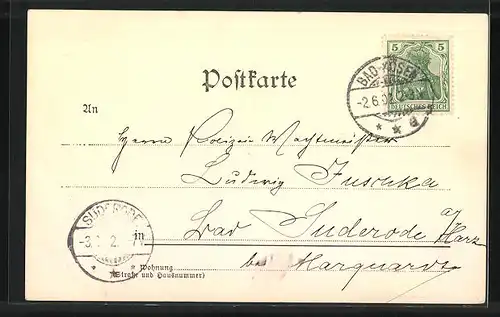 5 5
BAD-KÖSEN
-2.6.02
DEUTSCHES REICH
Postkarte
An
Herrn Polizei Wachtmeister
Ludwig Juschka
SUDERODE
in
Bad Suderode a/Harz
-3. 2.
bei Marquardt
Wohnung
(Straße und Hausnummer)